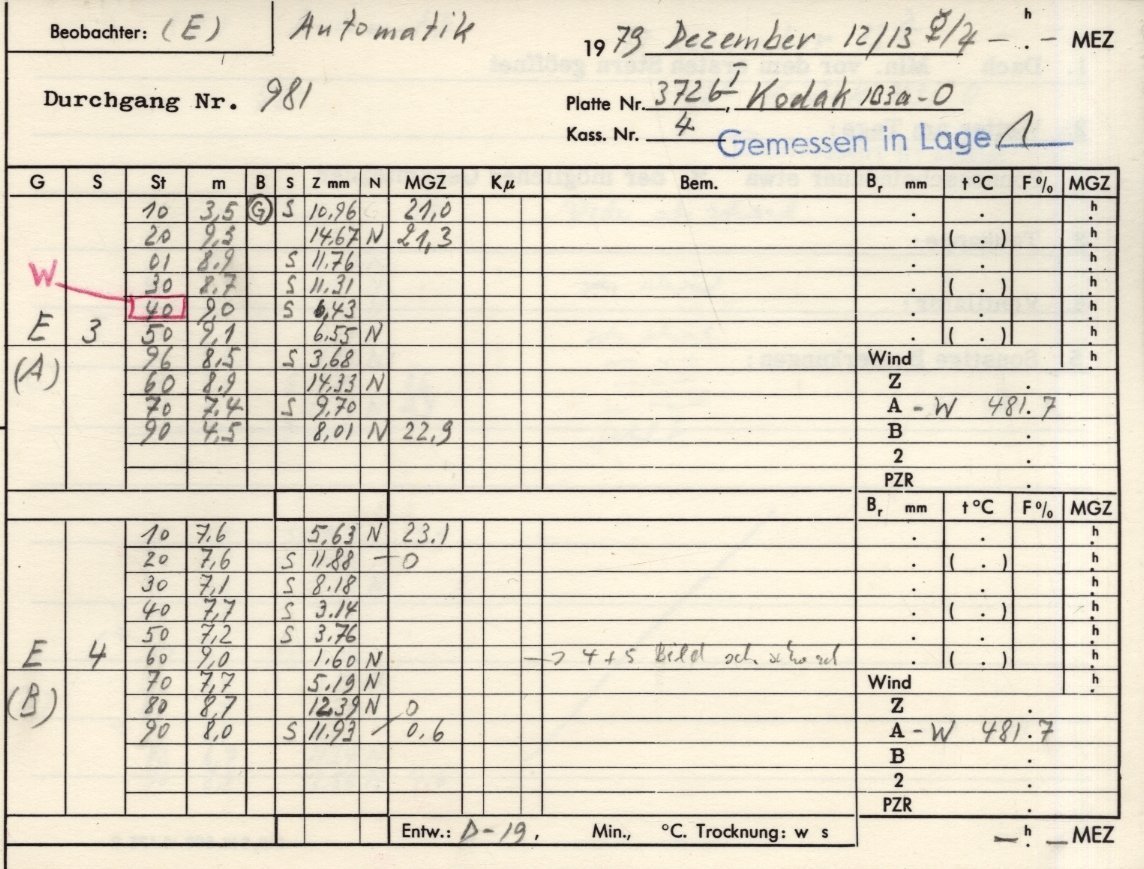 Beobachter: (E) Automatik
19 79 Dezember 12/13 ☿/♃ – . – h MEZ
Durchgang Nr. 981
Platte Nr. 3726 I, Kodak 103a-O
Kass. Nr. 4 Gemessen in Lage 1
G S St m B S Z mm N MGZ Kμ Bem. Br mm t°C F% MGZ
10 3,5 G S 10,96 21,0 . . h
20 9,3 14.67 N 21,3 . ( . ) h
01 8.9 S 11.76 . . h
W 30 8.7 S 11.31 . ( . ) h
40 9,0 S 6,43 . . h
E 3 50 9,1 6.55 N . ( . ) h
(A) 96 8,5 S 3,68 Wind h
60 8.9 14,33 N Z .
70 7.4 S 9,70 A - W 481.7
90 4,5 8,01 N 22,9 B .
2 .
PZR .
Br mm t°C F% MGZ
10 7.6 5,63 N 23.1 . . h
20 7,6 S 11.88 – 0 . ( . ) h
30 7,1 S 8.18 . . h
40 7,7 S 3.14 . ( . ) h
50 7,2 S 3.76 . . h
E 4 60 9,0 1.60 N → 4+5 Bild . ( . ) h
(B) 70 7,7 5.19 N Wind h
80 8,7 12.39 N 0 Z .
90 8,0 S 11.93 0.6 A - W 481.7
B .
2 .
PZR .
Entw.: D-19, Min., °C. Trocknung: w s – h – MEZ